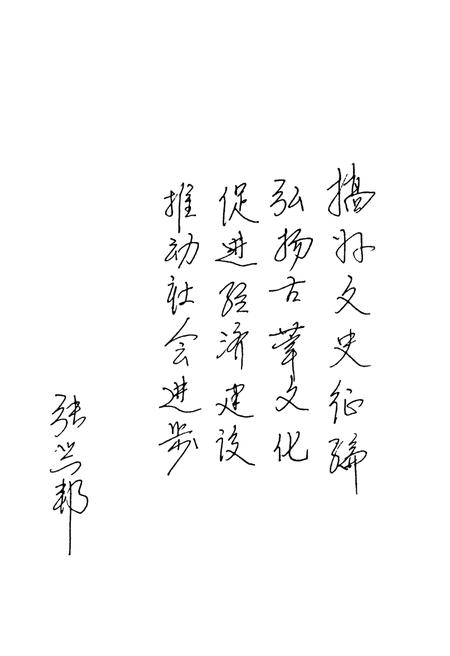 搞好文史征编
弘扬古莘文化
促进经济建设
推动社会进步
张兴邦